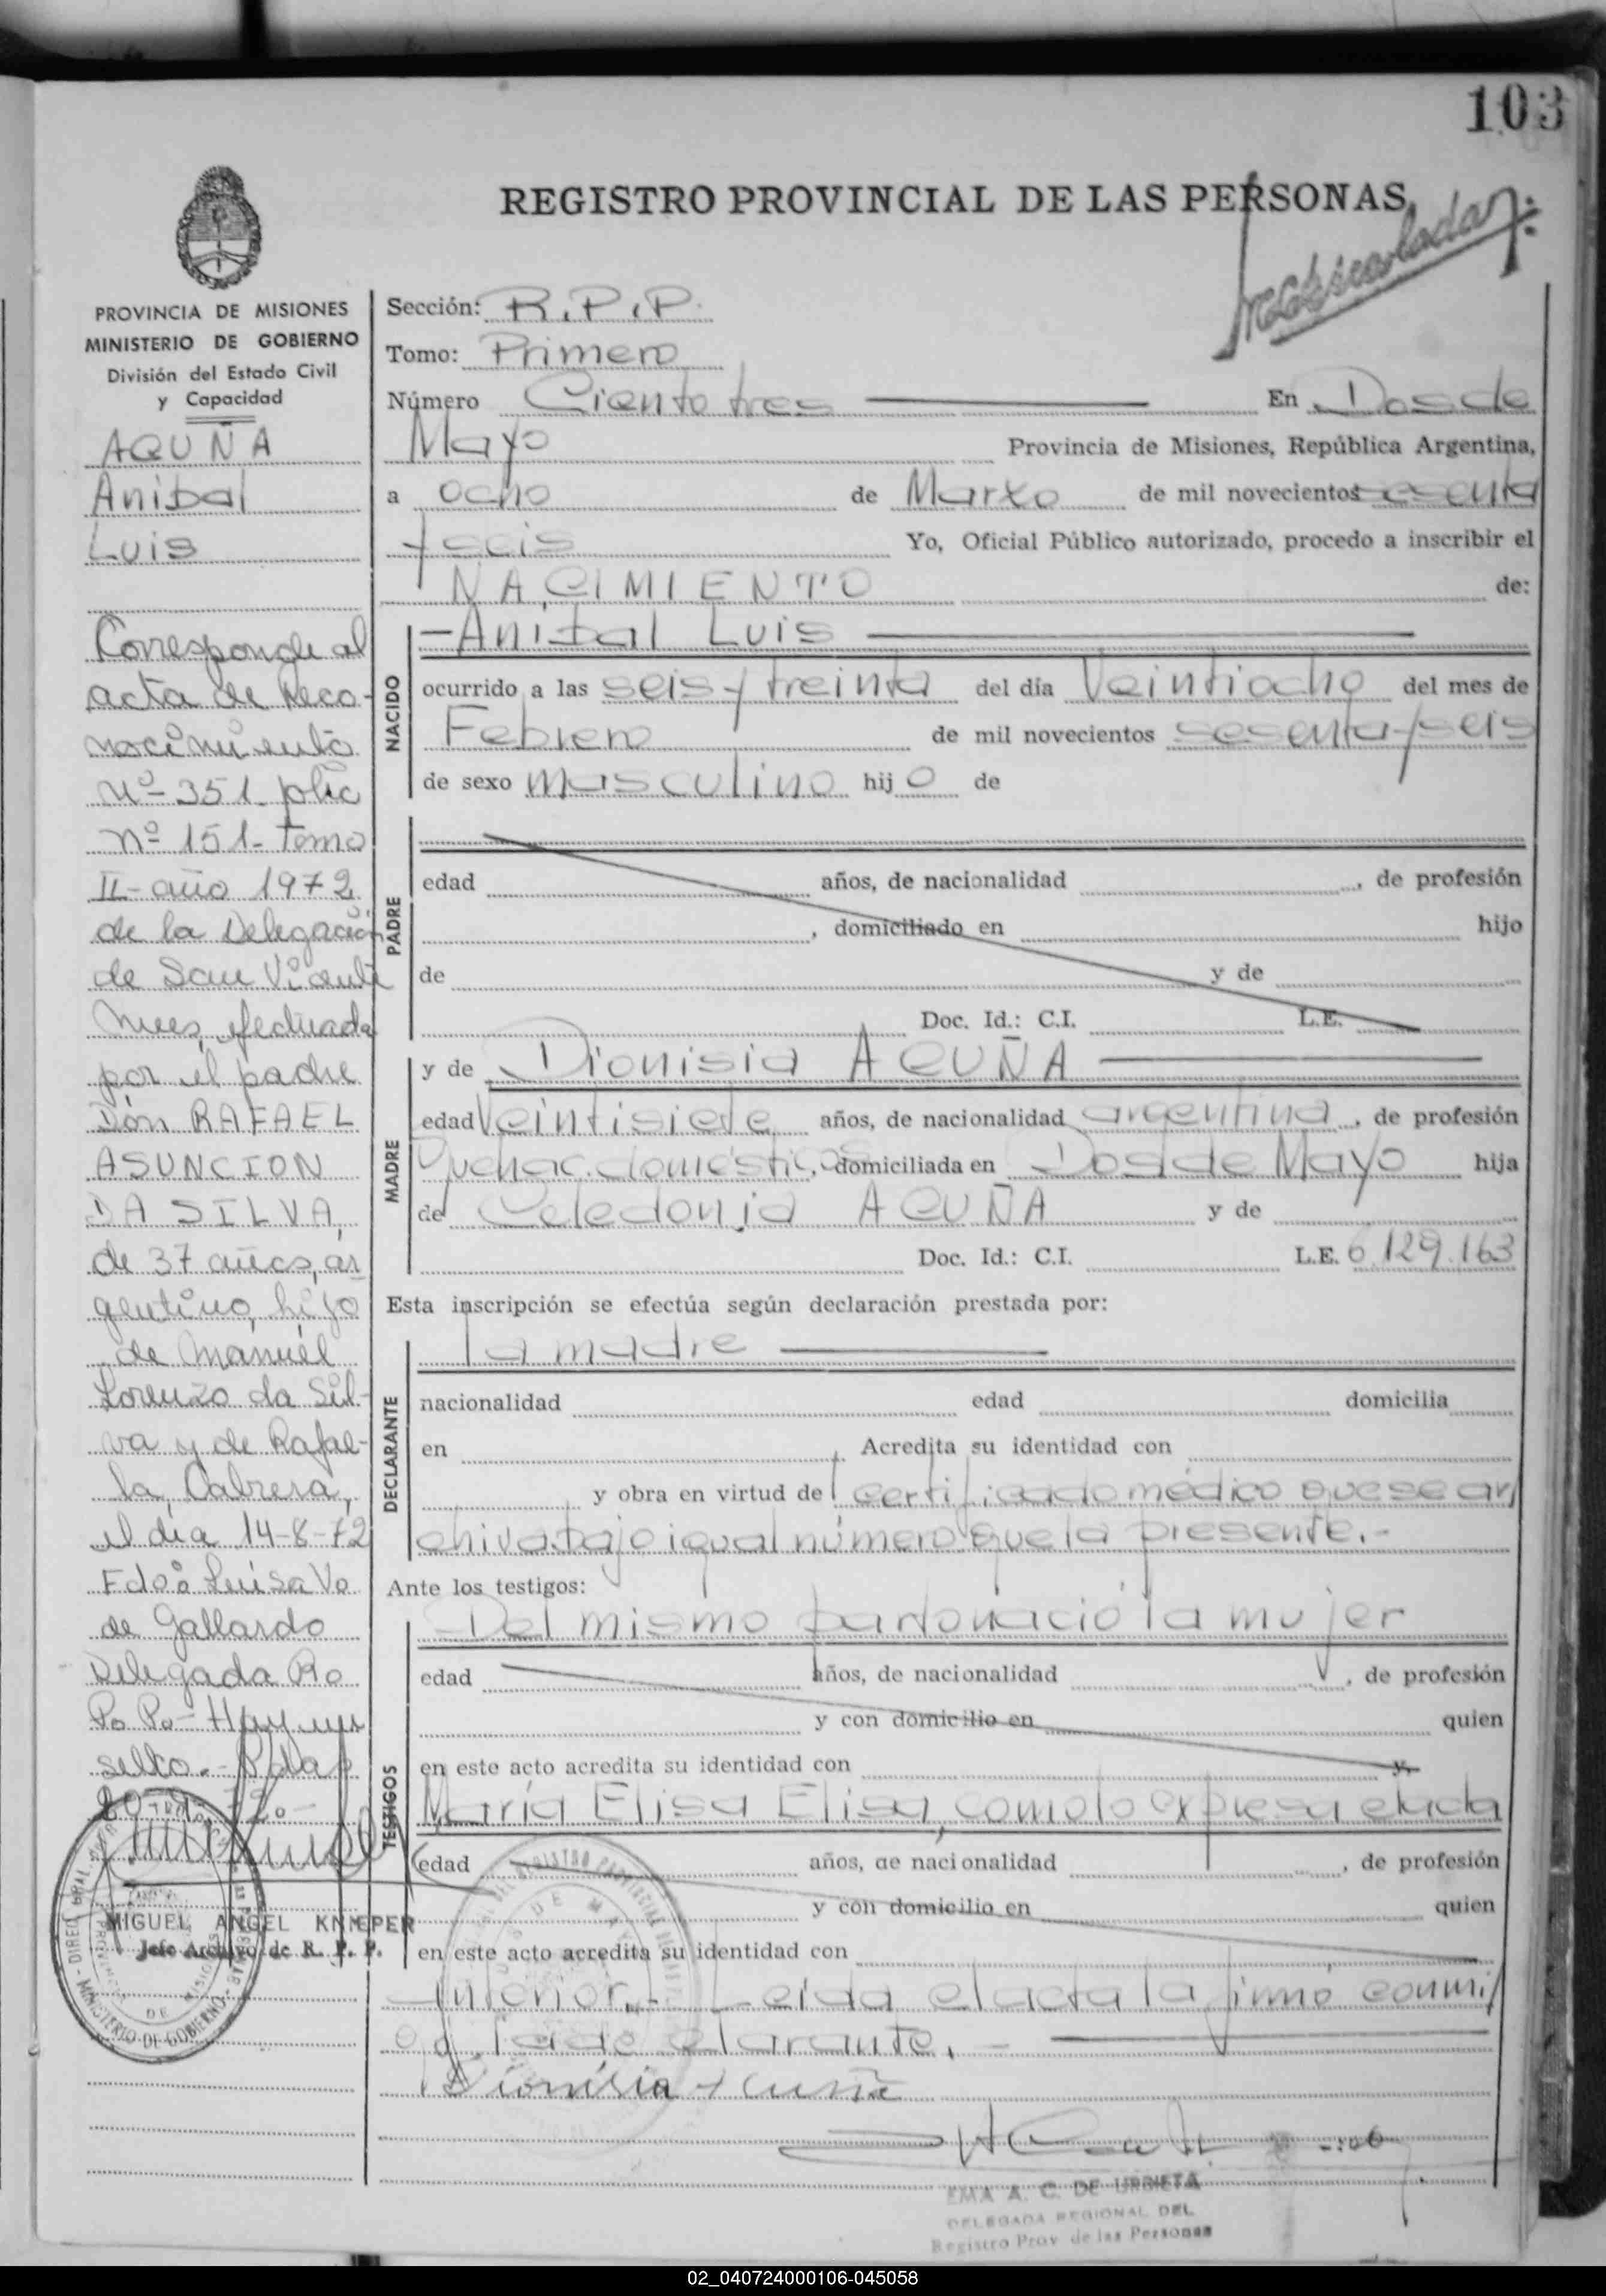 103
REGISTRO PROVINCIAL DE LAS PERSONAS
PROVINCIA DE MISIONES
MINISTERIO DE GOBIERNO
División del Estado Civil
y Capacidad
ACUÑA
Anibal
Luis
Corresponde al
acta de Reco-
nocimiento
Nº- 351- folio
Nº 151- Tomo
II- año 1972
de la Delegación
de San Vicente
Mnes, efectuada
por el padre
Don RAFAEL
ASUNCION
DA SILVA,
de 37 años, ar
gentino, hijo
de Manuel
Lorenzo da Sil-
va y de Rafae-
la, Cabrera,
el día 14-8-72
Fdo: Luisa Vo
de Gallardo
Delegada Ro
Po Po- Hay un
sello.- Pdas
20-9-72.-
MIGUEL ANGEL KNIEPER
Jefe Archivo de R. P. P.
MINISTERIO DE GOBIERNO
Sección: R.P.P.
Tomo: Primero
Número Ciento tres En Dos de
Mayo Provincia de Misiones, República Argentina,
a ocho de Marzo de mil novecientos sesenta
y seis Yo, Oficial Público autorizado, procedo a inscribir el
NACIMIENTO de:
NACIDO
-Anibal Luis
ocurrido a las seis y treinta del día Veintiocho del mes de
Febrero de mil novecientos sesenta y seis
de sexo masculino hijo de
PADRE
edad años, de nacionalidad , de profesión
, domiciliado en hijo
de y de
Doc. Id.: C.I. L.E.
MADRE
y de Dionisia ACUÑA
edad Veintisiete años, de nacionalidad argentina, de profesión
Quehac. domésticos, domiciliada en Dos de Mayo hija
de Celedonia ACUÑA y de
Doc. Id.: C.I. L.E. 6.129.163
Esta inscripción se efectúa según declaración prestada por:
DECLARANTE
la madre
nacionalidad edad domicilia
en , Acredita su identidad con
y obra en virtud de certificado médico que se ar
chiva bajo igual número que la presente.-
Ante los testigos:
TESTIGOS
Del mismo parto nació la mujer
edad años, de nacionalidad , de profesión
y con domicilio en quien
en este acto acredita su identidad con y,
María Elisa Elisa, como lo expresa el acta
edad años, de nacionalidad , de profesión
y con domicilio en quien
en este acto acredita su identidad con
Anterior.- Leida el acta la firmó conmi
go la declarante.-
Dionisia Acuña
EMA A. C. DE URRIETA
DELEGADA REGIONAL DEL
Registro Prov de las Personas
02_040724000106-045058